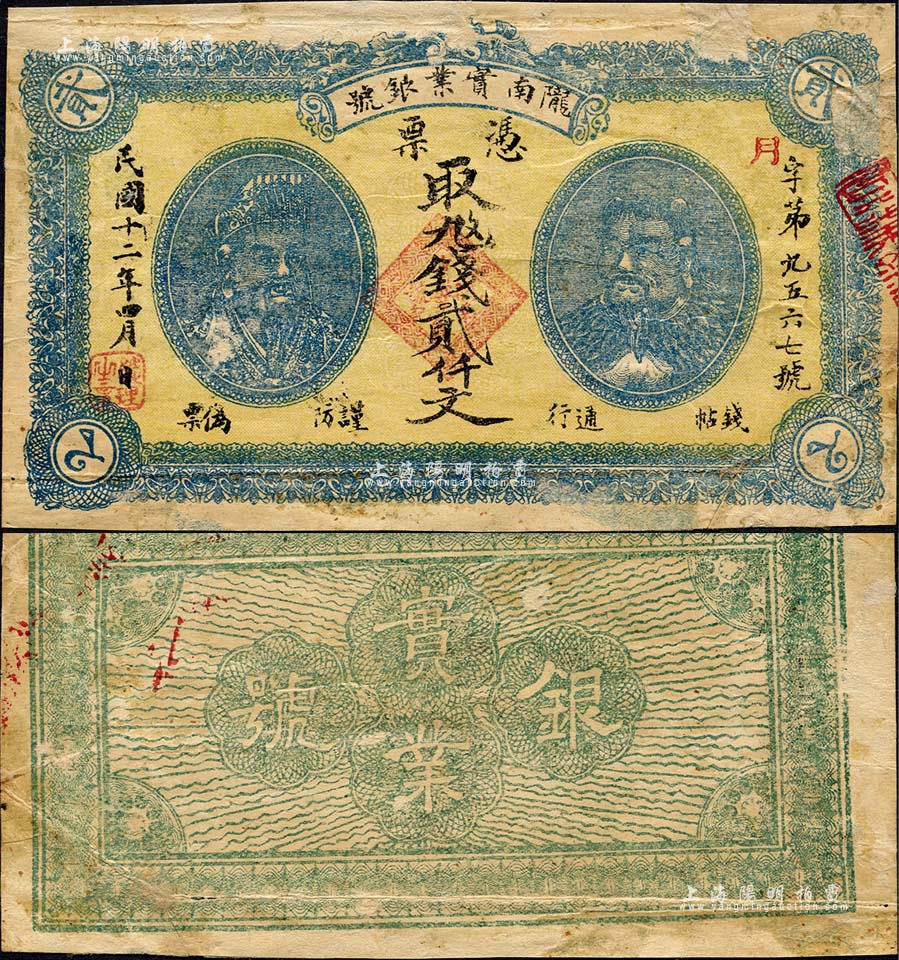 上海陽明拍賣
www.yangmingauction.com
隴南實業銀號
貳
貳
憑票
取九錢貳仟文
月字第九五六七號
民國十二年四月日
錢帖通行
謹防偽票
上海陽明拍賣
www.yangmingauction.com
實
號
銀
業
上海陽明拍賣
www.yangmingauction.com